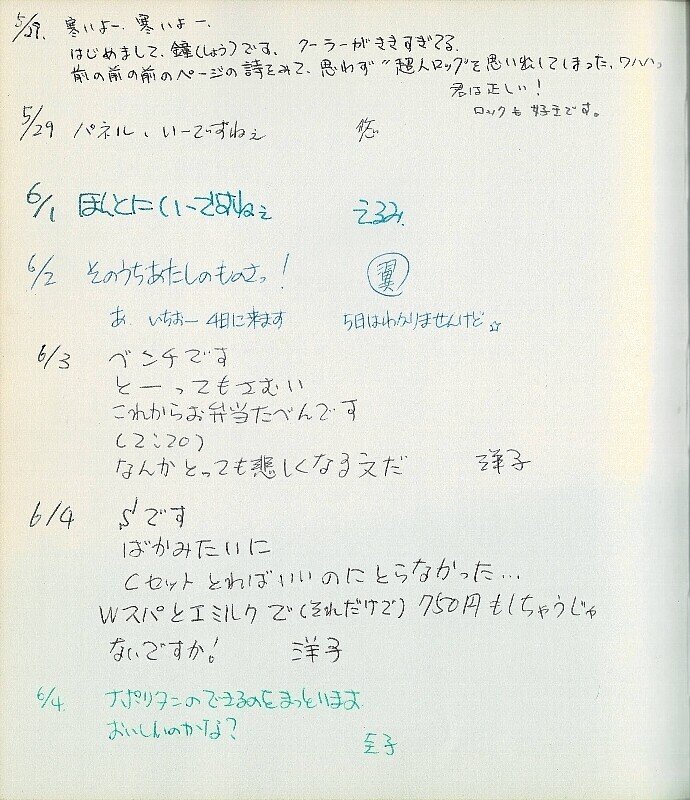 5/29. 寒いよー、寒いよー、
はじめまして、鐘(しょう)です、クーラーがききすぎてる、
前の前の前のページの詩をみて、思わず"超人ロック"を思い出してしまった、ワハハっ
君は正しい!
ロックも好きです。
5/29 パネル、いーですねぇ 悠
6/1 ほんとにいーですねぇ えるみ
6/2 そのうちあたしのものさっ! 翼
あ、いちおー4日に来ます 5日はわかりませんけど☆
6/3 ベンチです
とーってもさむい
これからお弁当たべんです
(2:20)
なんかとっても悲しくなる文だ 洋子
6/4 S'です
ばかみたいに
Cセットとればいいのにとらなかった…
WスパとエミルクでLそれだけで) 750円もしちゃうじゃ
ないですか! 洋子
6/4. ナポリタンのできるのをまっといます
おいしいのかな?
圣子